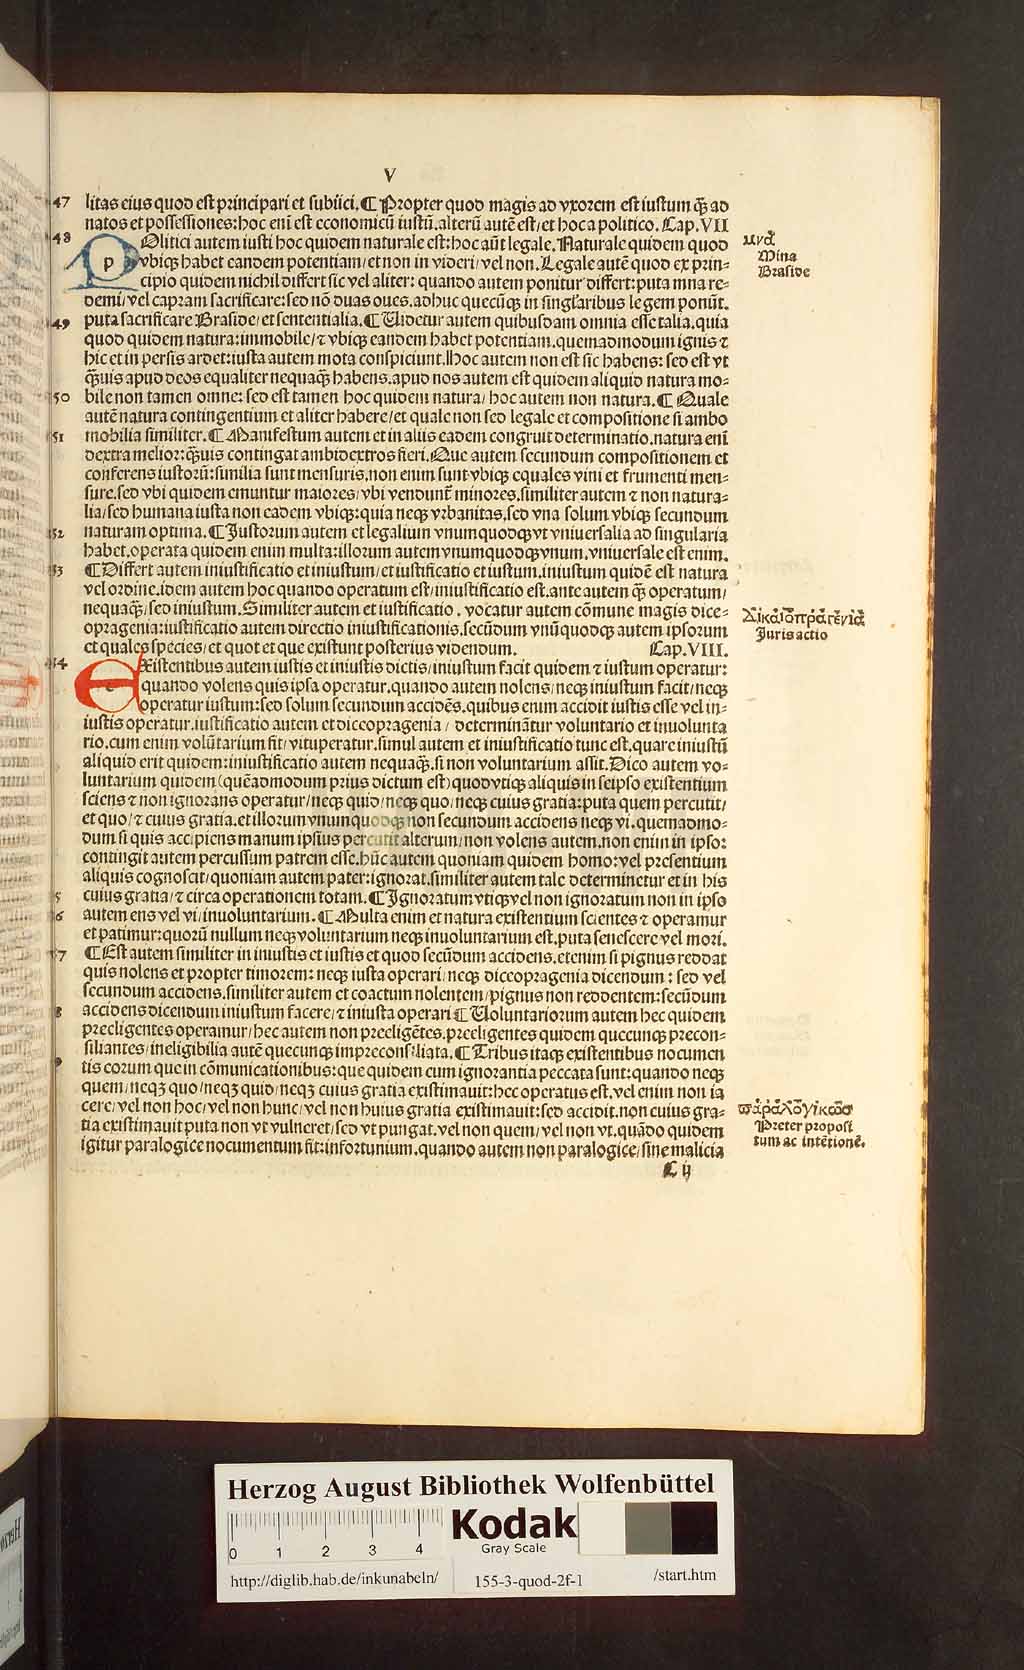 V
47 litas eius quod est principari et subiici. ¶ Propter quod magis ad vxorem est iustum q̃ ad
natos et possessiones: hoc eni est economicũ iustũ. alterũ autẽ est/ et hoc a politico. Cap. VII
48 POlitici autem iusti hoc quidem naturale est: hoc aũt legale. Naturale quidem quod
vbiqꝫ habet eandem potentiam/ et non in videri/ vel non. Legale autẽ quod ex prin-
cipio quidem nichil differt sic vel aliter: quando autem ponitur differt: puta mna re-
demi/ vel capram sacrificare: sed nõ duas oues. adhuc quecũqꝫ in singlaribus legem ponũt.
49 puta sacrificare Braside/ et sententialia. ¶ Uidetur autem quibusdam omnia esse talia. quia
quod quidem natura: immobile/ ⁊ vbiqꝫ eandem habet potentiam. quemadmodum ignis ⁊
hic et in persis ardet: iusta autem mota conspiciunt. Hoc autem non est sic habens: sed est vt
q̃uis apud deos equaliter nequaq̃ habens. apud nos autem est quidem aliquid natura mo-
50 bile non tamen omne: sed est tamen hoc quidem natura/ hoc autem non natura. ¶ Quale
autẽ natura contingentium et aliter habere/ et quale non sed legale et compositione si ambo
51 mobilia similiter. ¶ Manifestum autem et in aliis eadem congruit determinatio. natura eni
dextra melior: q̃uis contingat ambidextros fieri. Que autem secundum compositionem et
conferens iustorũ: similia sunt mensuris. non enim sunt vbiqꝫ equales vini et frumenti men-
sure. sed vbi quidem emuntur maiores/ vbi vendunt̃ minores. similiter autem ⁊ non natura-
lia/ sed humana iusta non eadem vbiqꝫ: quia neqꝫ vrbanitas. sed vna solum vbiqꝫ secundum
52 naturam optima. ¶ Justorum autem et legalium vnumquodqꝫ vt vniuersalia ad singularia
habet. operata quidem enim multa: illorum autem vnumquodqꝫ vnum. vniuersale est enim.
53 ¶ Differt autem iniustificatio et iniustum/ et iustificatio et iustum. iniustum quidẽ est natura
vel ordine. idem autem hoc quando operatum est/ iniustificatio est. ante autem q̃ operatum/
nequaq̃/ sed iniustum. Similiter autem et iustificatio. vocatur autem cõmune magis dice-
opragenia: iustificatio autem directio iniustificationis. secũdum vnũquodqꝫ autem ipsorum
et quales species/ et quot et que existunt posterius videndum. Cap. VIII.
54 EXistentibus autem iustis et iniustis dictis/ iniustum facit quidem ⁊ iustum operatur:
quando volens quis ipsa operatur. quando autem nolens/ neqꝫ iniustum facit/ neqꝫ
operatur iustum: sed solum secundum accidẽs. quibus enim accidit iustis esse vel in-
iustis operatur. iustificatio autem et diceopragenia/ determinãtur voluntario et inuolunta
rio. cum enim volũtarium fit/ vituperatur. simul autem et iniustificatio tunc est. quare iniustũ
aliquid erit quidem: iniustificatio autem nequaqꝫ. si non voluntarium assit. Dico autem vo-
luntarium quidem (quẽadmodum prius dictum est) quod vtiqꝫ aliquis in seipso existentium
sciens ⁊ non ignorans operatur/ neqꝫ quid/ neqꝫ quo/ neqꝫ cuius gratia: puta quem percutit/
et quo/ ⁊ cuius gratia. et illorum vnumquodqꝫ non secundum accidens neqꝫ vi. quemadmo-
dum si quis accipiens manum ipsius percutit alterum/ non volens autem. non enim in ipso:
contingit autem percussum patrem esse. hũc autem quoniam quidem homo: vel presentium
aliquis cognoscit/ quoniam autem pater: ignorat. similiter autem tale determinetur et in his
5 cuius gratia/ ⁊ circa operationem totam. ¶ Ignoratum vtiqꝫ vel non ignoratum non in ipso
6 autem ens vel vi/ inuoluntarium. ¶ Multa enim et natura existentium scientes ⁊ operamur
et patimur: quorũ nullum neqꝫ voluntarium neqꝫ inuoluntarium est. puta senescere vel mori.
7 ¶ Est autem similiter in iniustis et iustis et quod secũdum accidens. etenim si pignus reddat
quis nolens et propter timorem: neqꝫ iusta operari/ neqꝫ diceopragenia dicendum: sed vel
secundum accidens. similiter autem et coactum nolentem/ pignus non reddentem: secũdum
8 accidens dicendum iniustum facere/ ⁊ iniusta operari ¶ Uoluntariorum autem hec quidem
preeligentes operamur/ hec autem non preeligẽtes. preeligentes quidem quecunqꝫ precon-
9 siliantes/ ineligibilia autẽ quecunqꝫ impreconsiliata. ¶ Tribus itaqꝫ existentibus nocumen
tis eorum que in cõmunicationibus: que quidem cum ignorantia peccata sunt: quando neqꝫ
quem/ neqꝫ quo/ neqꝫ quid/ neqꝫ cuius gratia existimauit: hec operatus est. vel enim non ia
cere/ vel non hoc/ vel non hunc/ vel non huius gratia existimauit: sed accidit. non cuius gra-
tia existimauit puta non vt vulneret/ sed vt pungat. vel non quem/ vel non vt. quãdo quidem
igitur paralogice nocumentum fit: infortunium. quando autem non paralogice/ sine malicia
C ij
μνᾶ
Mina
Braside
Δικαιοπραγενία
Juris actio
παραλογικῶς
Preter proposi
tum ac intẽtionẽ.
Herzog August Bibliothek Wolfenbüttel
0 1 2 3 4
Kodak
Gray Scale
http://diglib.hab.de/inkunabeln/ 155-3-quod-2f-1 /start.htm